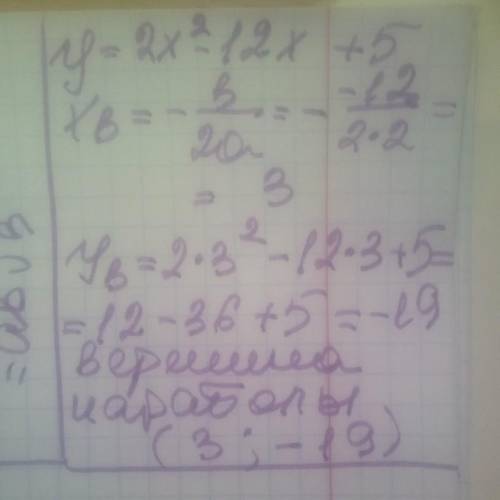 y = 2x² - 12x + 5
xв = - в/2a = - -12/2·2 =
= 3
yв = 2·3² - 12·3 + 5 =
= 12 - 36 + 5 = -19
вершина
параболы
(3; -19)